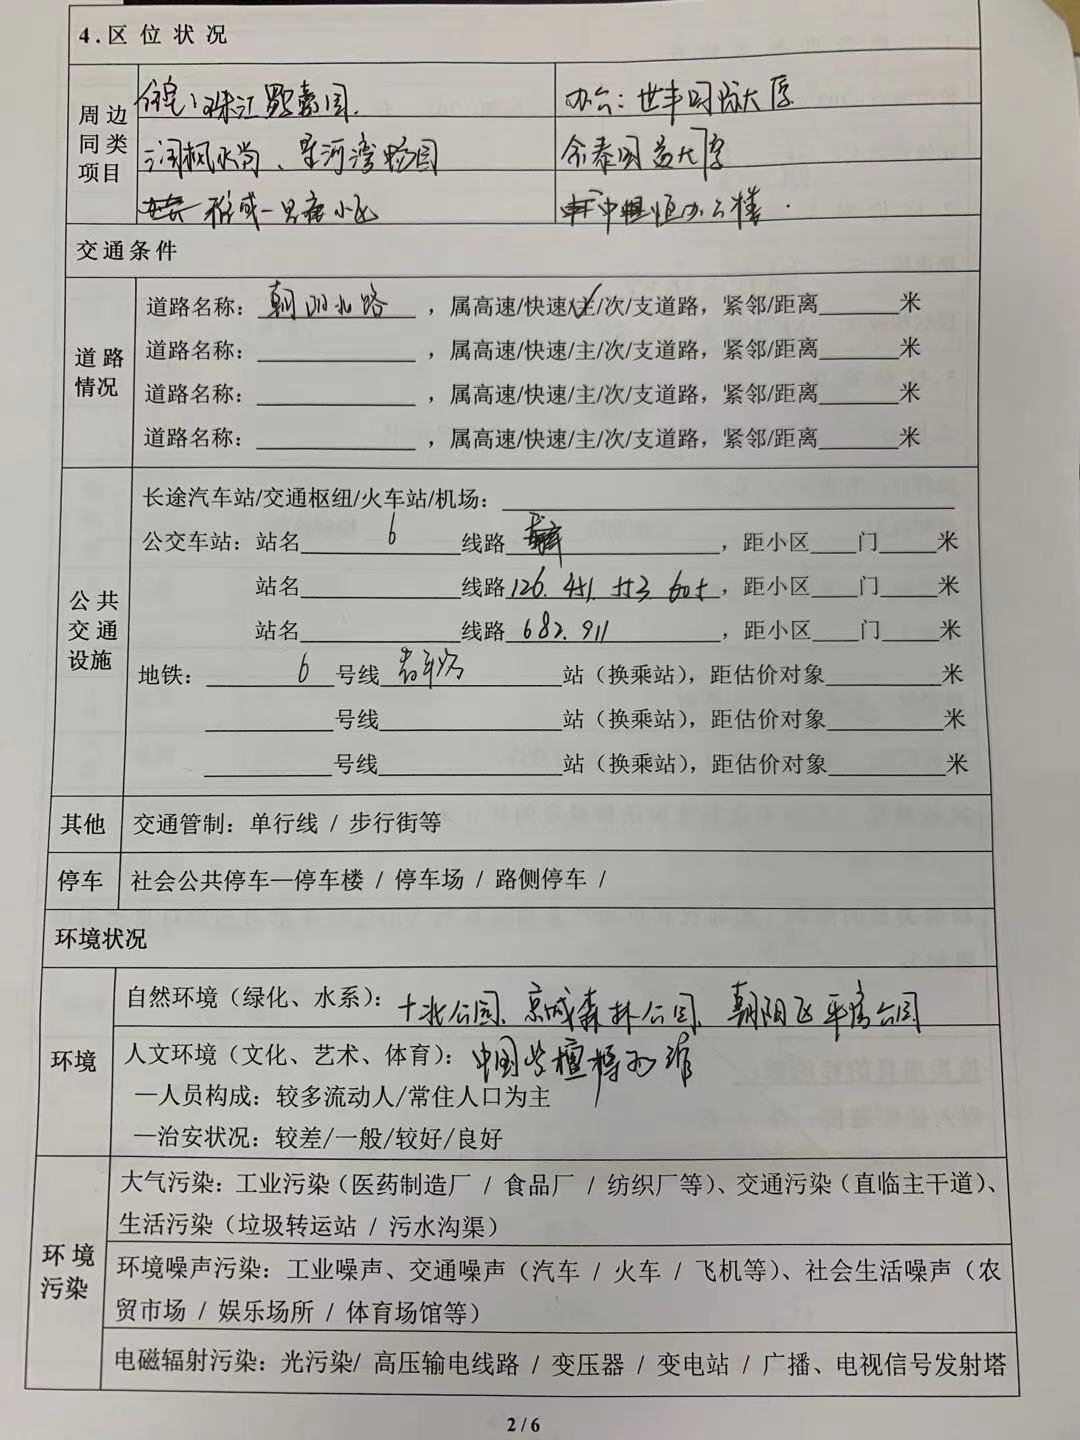 4.区位状况
周边同类项目
住宅：珠江罗马嘉园
办公：世丰国际大厦
润枫水尚、星河湾畅园
华泰国益大厦
雅成一里南小区
中恒办公楼
交通条件
道路情况
道路名称：朝阳北路，属高速/快速/主√/次/支道路，紧邻/距离____米
道路名称：____，属高速/快速/主/次/支道路，紧邻/距离____米
道路名称：____，属高速/快速/主/次/支道路，紧邻/距离____米
道路名称：____，属高速/快速/主/次/支道路，紧邻/距离____米
公共交通设施
长途汽车站/交通枢纽/火车站/机场：____
公交车站：站名 6 线路____，距小区____门____米
站名____线路126. 451. 553. 605，距小区____门____米
站名____线路682. 911，距小区____门____米
地铁：6号线青年路站（换乘站），距估价对象____米
____号线____站（换乘站），距估价对象____米
____号线____站（换乘站），距估价对象____米
其他 交通管制：单行线 / 步行街等
停车 社会公共停车—停车楼 / 停车场 / 路侧停车 /
环境状况
环境
自然环境（绿化、水系）：十北公园、京城森林公园、朝阳区平房公园
人文环境（文化、艺术、体育）：中国紫檀博物馆
—人员构成：较多流动人/常住人口为主
—治安状况：较差/一般/较好/良好
环境污染
大气污染：工业污染（医药制造厂 / 食品厂 / 纺织厂等）、交通污染（直临主干道）、
生活污染（垃圾转运站 / 污水沟渠）
环境噪声污染：工业噪声、交通噪声（汽车 / 火车 / 飞机等）、社会生活噪声（农
贸市场 / 娱乐场所 / 体育场馆等）
电磁辐射污染：光污染/ 高压输电线路 / 变压器 / 变电站 / 广播、电视信号发射塔
2/6